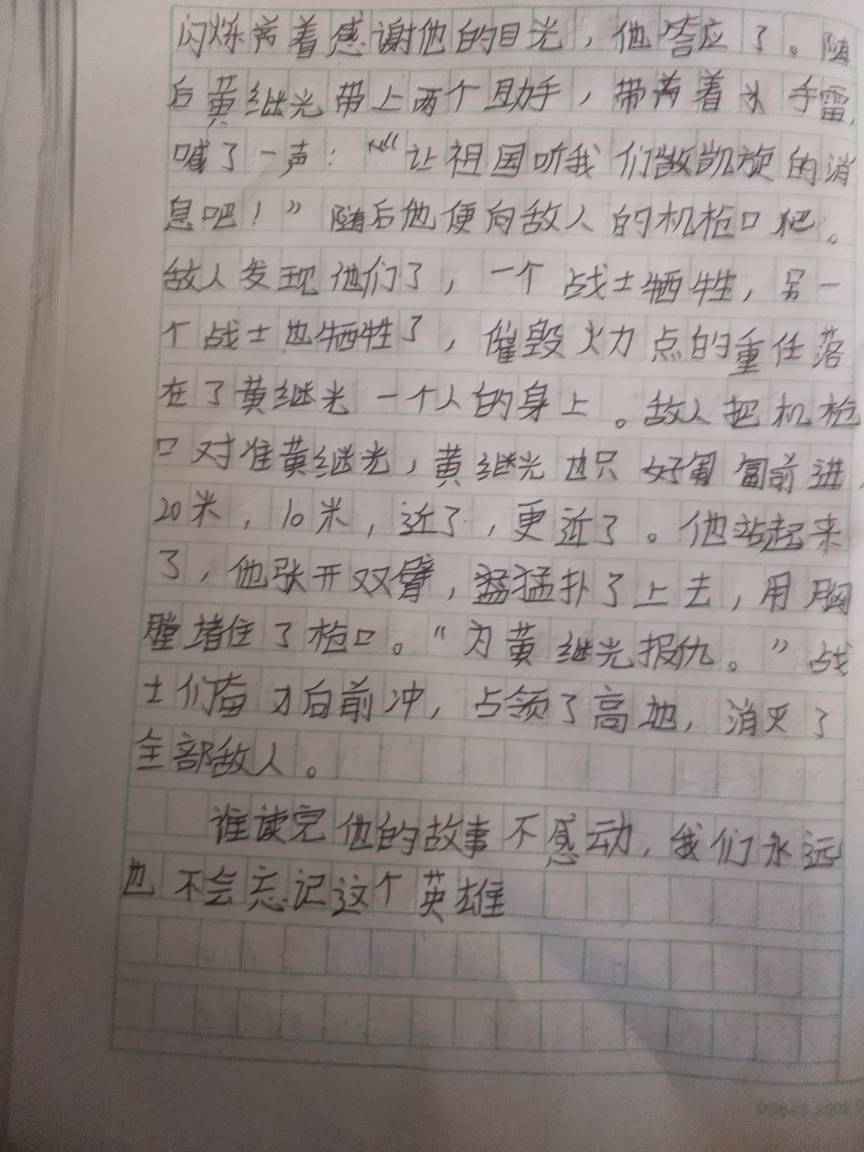 闪烁着感谢他的目光，他答应了。随
后黄继光带上两个助手，带着手雷，
喊了一声：“让祖国听我们凯旋的消
息吧！”随后他便向敌人的机枪口爬。
敌人发现他们了，一个战士牺牲，另一
个战士也牺牲了，催毁火力点的重任落
在了黄继光一个人的身上。敌人把机枪
口对准黄继光，黄继光也只好匍匐前进，
20米，10米，近了，更近了。他站起来
了，他张开双臂，猛猛扑了上去，用胸
膛堵住了枪口。“为黄继光报仇。”战
士们奋力向前冲，占领了高地，消灭了
全部敌人。
谁读完他的故事不感动，我们永远
也不会忘记这个英雄